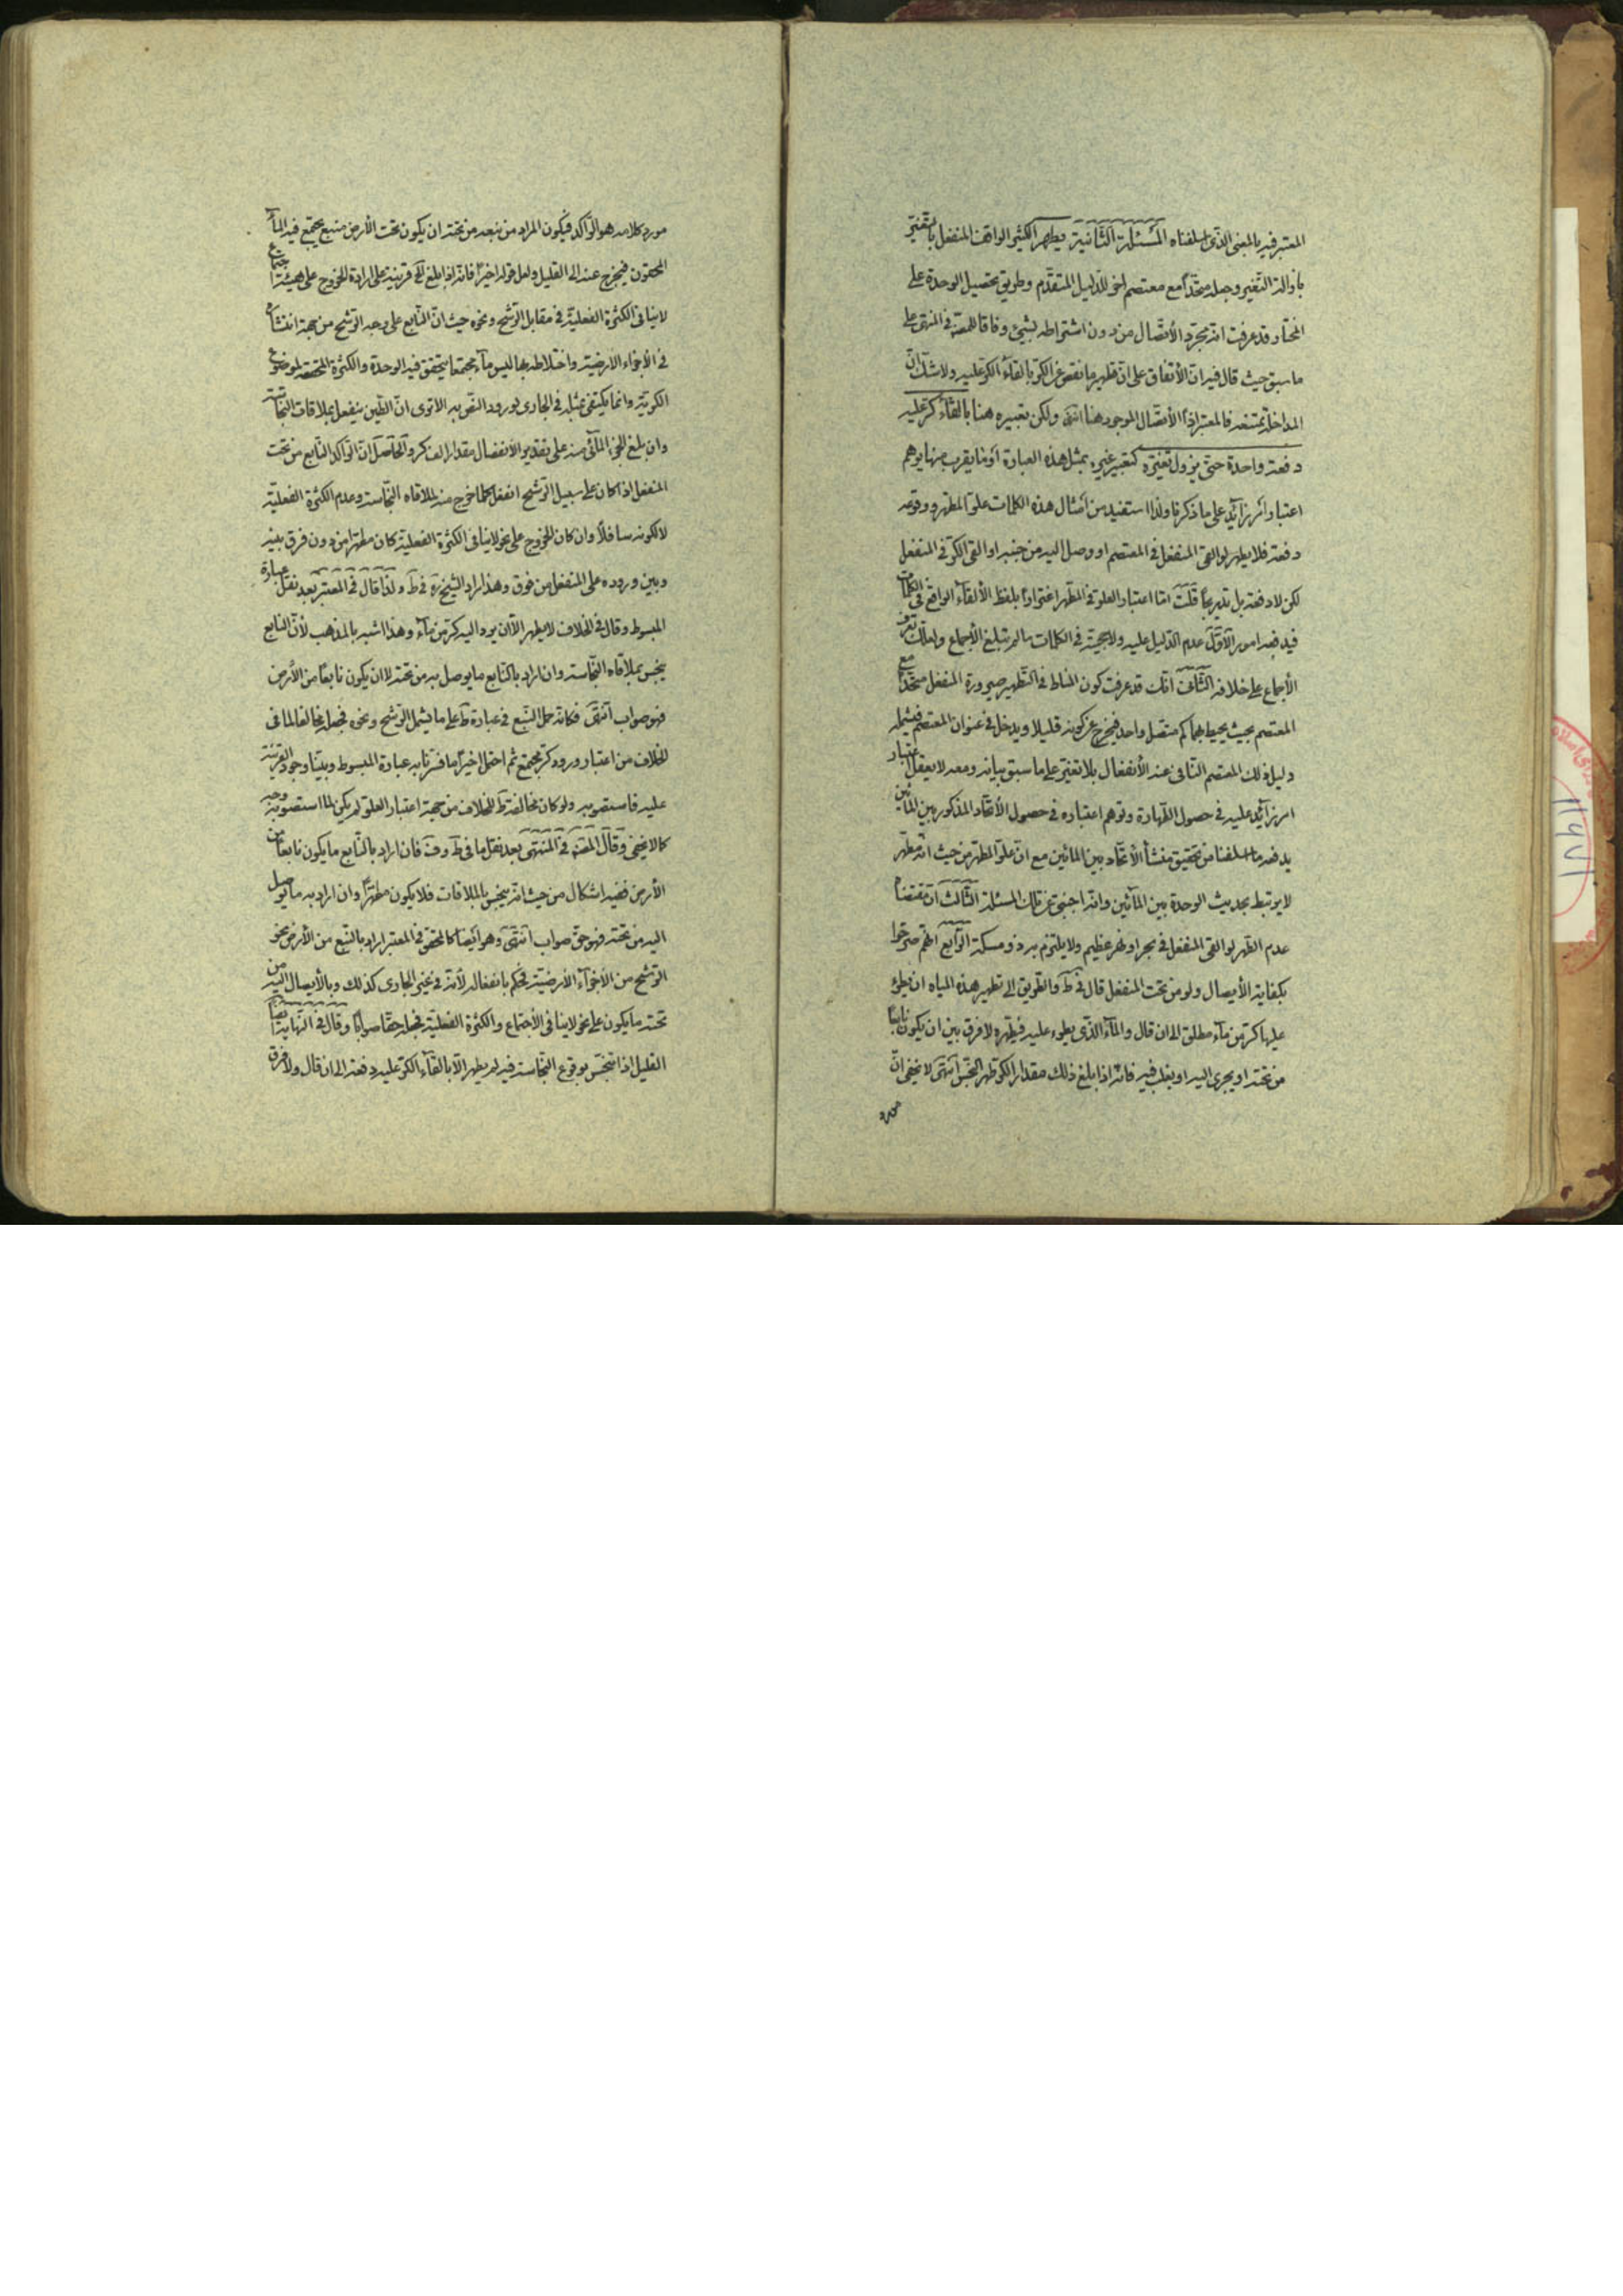 المعتبر فيه بالمعنى الذى اسلفناه المسئلة الثانية يطهر الكثير الواقف المنفعل بالتغير
بازالة التغير وجعله متحدا مع معتصم اخر للدليل المتقدم وطريق تحصيل الوحدة على
المختار قد عرفت انه مجرد الأتصال من دون اشتراطه بشيئ وفاقا للمصنف فى المنتهى على
ما سبق حيث قال فيه ان الأتفاق على ان تطهير ما نقص عن الكر بالقاء الكر عليه ولا شك ان
المداخلة ممتنعة فالمعتبر اذا الأتصال الموجود هنا انتهى ولكن تعبيره هنا بالقاء كر عليه
دفعة واحدة حتى يزول تغيره كتعبير غيره بمثل هذه العبارة او بما يقرب منها يوهم
اعتبار امر زائد على ما ذكرنا ولذا استفيد من امثال هذه الكلمات علو المطهر ووقوعه
دفعة فلا يطهر لو القى المنفعل فى المعتصم او وصل اليه من جنبه او القى الكر فى المنفعل
لكن لا دفعة بل تدريجا قلت اما اعتبار العلو فى المطهر اغترارا بلفظ الألقاء الواقع فى الكلمات
فيدفعه امور الاول عدم الدليل عليه ولا حجية فى الكلمات ما لم تبلغ الأجماع ولعلك تعرف
الأجماع على خلافه الثانى انك قد عرفت كون المناط فى التطهير صيرورة المنفعل متحدا مع
المعتصم بحيث يحيط بهما كم متصل واحد فيخرج عن كونه قليلا ويدخل فى عنوان المعتصم فيشمله
دليل ذلك المعتصم النافى عند الأنفعال بلا تغير على ما سبق بيانه ومعه لا يعقل اعتبار
امر زائد عليه فى حصول الطهارة وتوهم اعتباره فى حصول الأتحاد المذكور بين المائين
يدفعه ما اسلفنا من تحقيق منشأ الأتحاد بين المائين مع ان علو المطهر من حيث انه مطهر
لا يرتبط بحديث الوحدة بين المائين وانه اجنبى عن تلك المسئلة الثالث ان مقتضاه
عدم الطهر لو القى المنفعل فى بحر او نهر عظيم ولا يلتزم به ذو مسكة الرابع انهم صرحوا
بكفاية الأيصال ولو من تحت المنفعل قال فى ط والطريق الى تطهير هذه المياه ان يطرء
عليها كر من ماء مطلق الى ان قال والماء الذى يطرء عليه فيطهره لا فرق بين ان يكون نابعا
من تحته او يجرى اليه او يغلب فيه فانه اذا بلغ ذلك مقدار الكر طهر النجس انتهى لا يخفى ان
مورد
مورد كلامه هو الراكد فيكون المراد من نبعه من تحته ان يكون تحت الأرض منبع يجتمع فيه الماء
المحقون فيخرج عنه الى القليل ولعل قوله اخيرا فانه اذا بلغ الخ قرينة على ارادة الخروج على هيئة اجتماع
لا ينافى الكثرة الفعلية فى مقابل الترشح ونحوه حيث ان النابع على وجه الترشح من جهة انتشاره
فى الأجزاء الارضية واختلاطه بها ليس ماء مجتمعا يتحقق فيه الوحدة والكثرة المحققة لموضوع
الكرية وانما يكتفى بمثله فى الجارى لورود النص به الا ترى ان الطين ينفعل بملاقات النجاسة
وان بلغ الجزء المائى منه على تقدير الأنفصال مقدار الف كر والحاصل ان الراكد النابع من تحت
المنفعل اذا كان على سبيل الترشح انفعل كلما خرج منه لملاقاه النجاسة وعدم الكثرة الفعلية
لا لكونه سافلا وان كان الخروج على نحو لا ينافى الكثرة الفعلية كان مطهرا من دون فرق بينه
وبين وروده على المنفعل من فوق وهذا مراد الشيخ ره فى ط ولذا قال فى المعتبر بعد نقل عبارة
المبسوط وقال فى الخلاف لا يطهر الا ان يرد اليه كر من ماء وهذا اشبه بالمذهب لأن النابع
ينجس بملاقاه النجاسة وان اراد بالنابع ما يوصل به من تحته لا ان يكون نابعا من الأرض
فهو صواب انتهى فكانه حمل النبع فى عبارة ط على ما يشمل الترشح ونحوه فجعله مخالفا لما فى
الخلاف من اعتبار ورود كر مجتمع ثم احتمل اخيرا ما فسرنا به عبارة المبسوط وبينا وجود القرينة
عليه فاستصوبه ولو كان مخالفة ط للخلاف من جهة اعتبار العلو لم يكن لما استصوبه وجه
كما لا يخفى وقال المصنف فى المنتهى بعد نقل ما فى ط وف فان اراد بالنابع ما يكون نابعا من
الأرض ففيه اشكال من حيث انه ينجس بالملاقات فلا يكون مطهرا وان اراد به ما يوصل
اليه من تحته فهو حق صواب انتهى وهو ايضا كالمحقق فى المعتبر اراد بالنبع من الأرض نحو
الترشح من الأجزاء الأرضية فحكم بانفعاله لأنه فى غير الجارى كذلك وبالأيصال اليه من
تحته ما يكون على نحو لا ينافى الأجتماع والكثرة الفعلية فجعله حقا صوابا وقال فى النهاية ايضا
القليل اذا تنجس بوقوع النجاسة فيه لم يطهر الا بالقاء الكر عليه دفعة الى ان قال ولا فرق